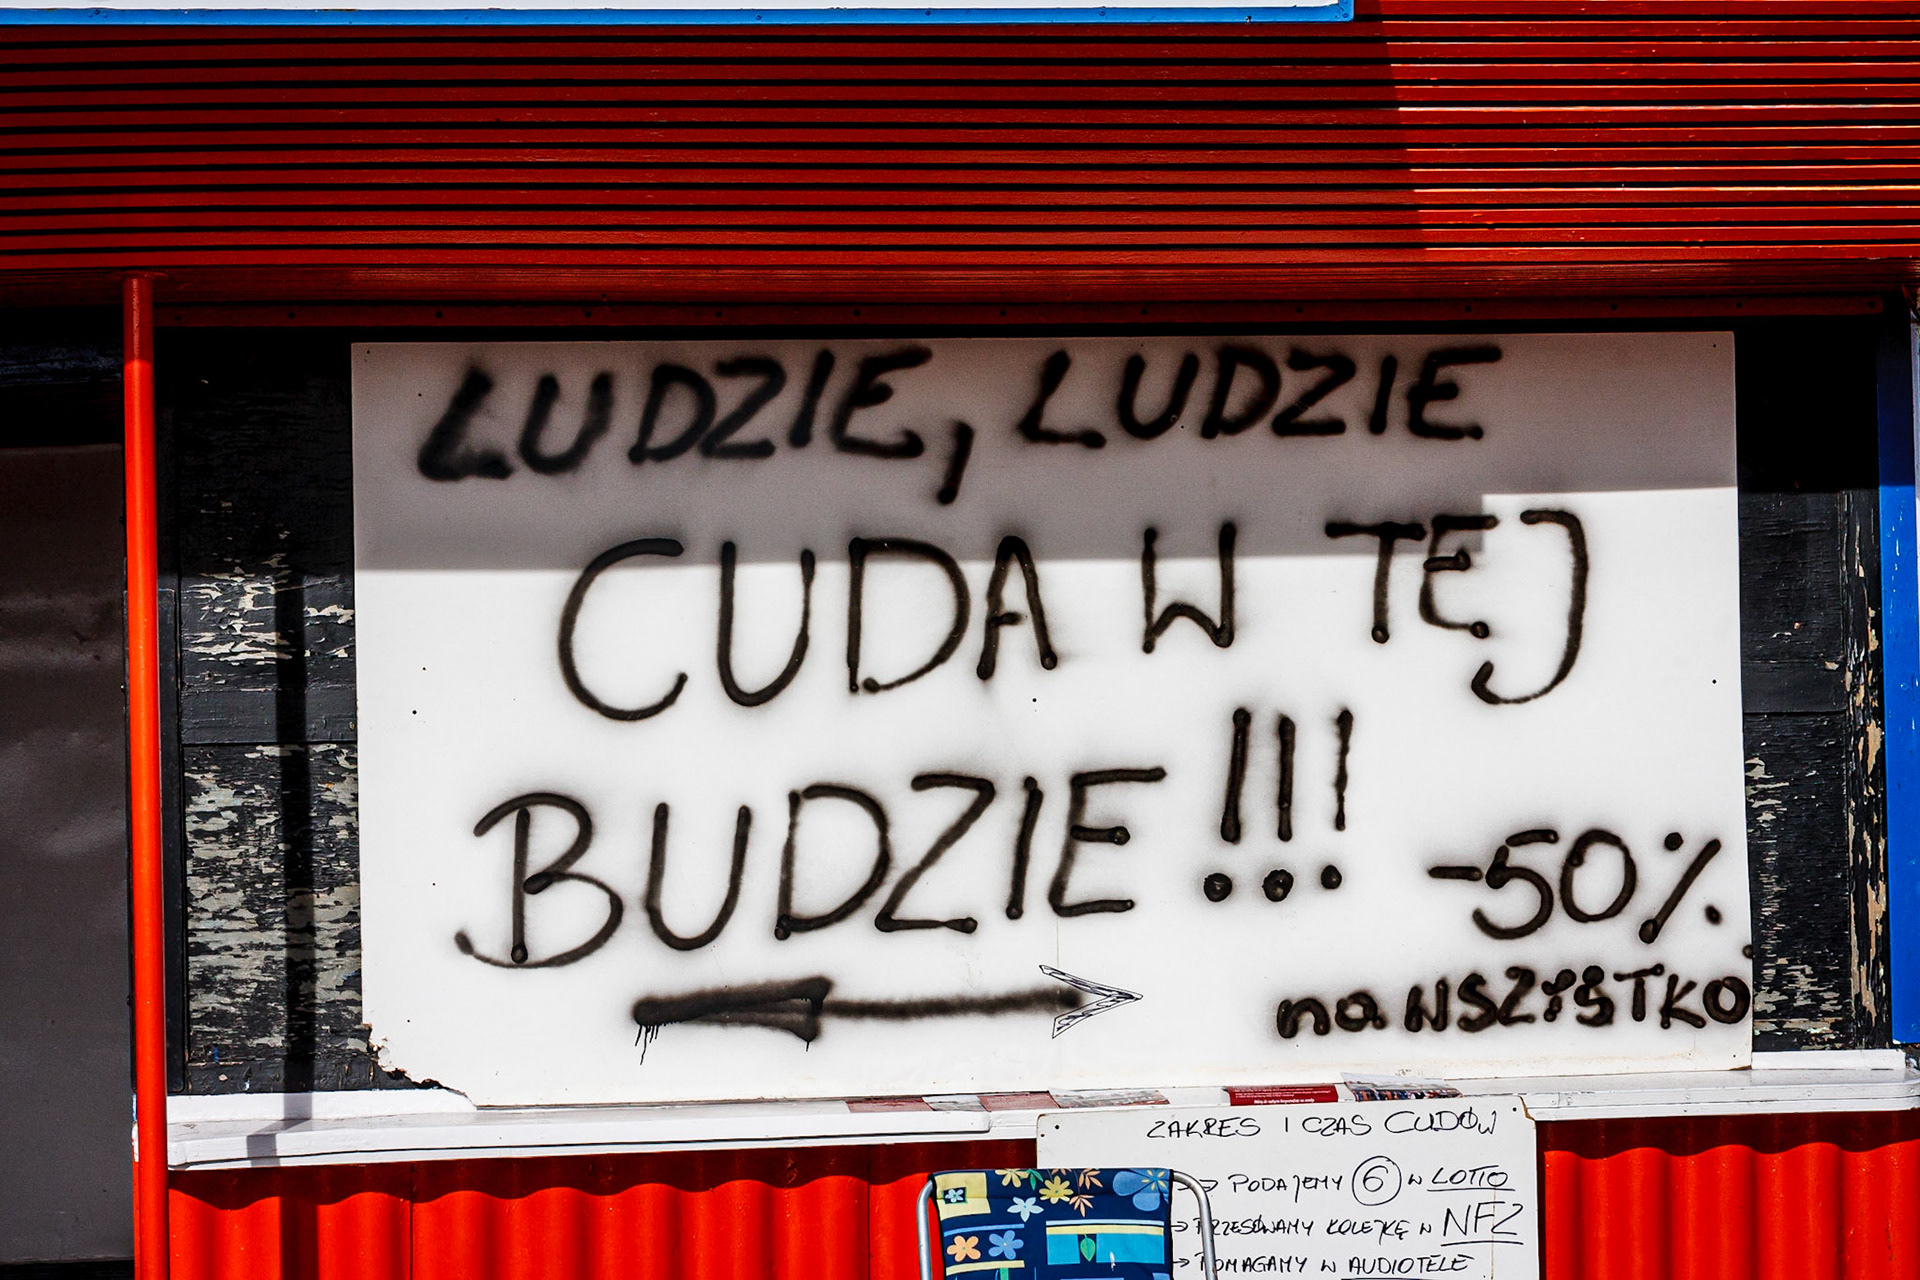 LUDZIE, LUDZIE
CUDA W TEJ
BUDZIE!!!
-50%
na WSZYSTKO
ZAKRES I CZAS CUDÓW
→ PODAJEMY 6 W LOTTO
→ PRZESUWAMY KOLEJKĘ W NFZ
→ POMAGAMY W AUDIOTELE